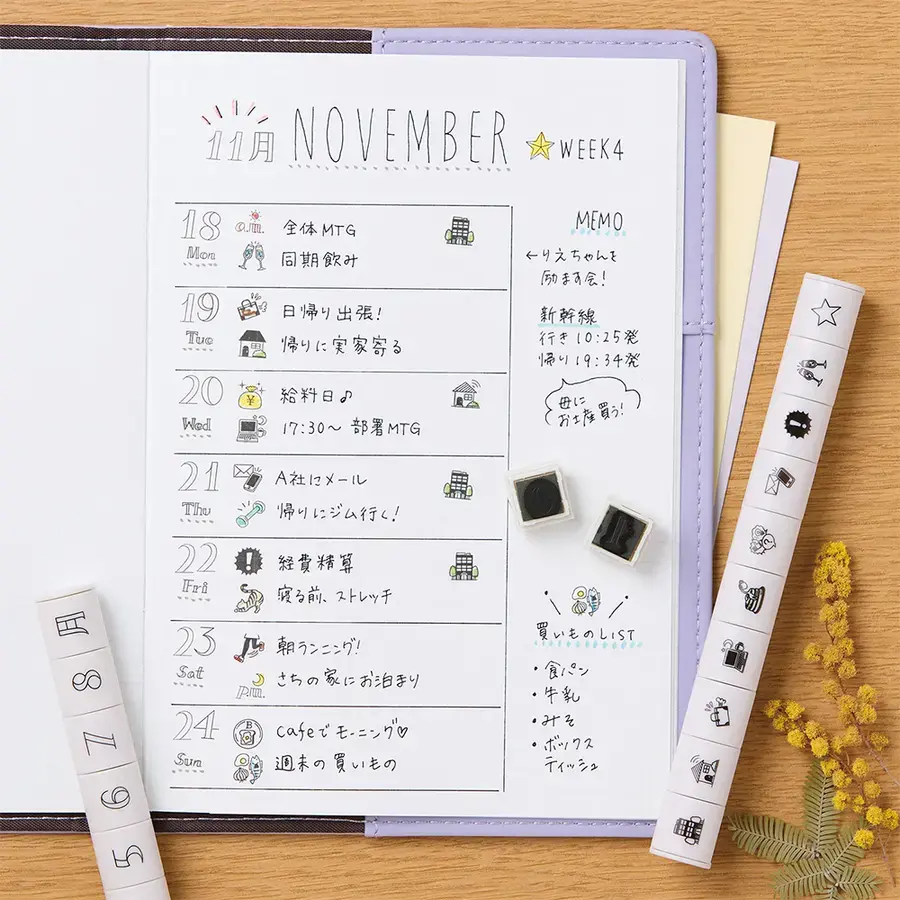 11月 NOVEMBER ★WEEK4
18 Mon
a.m. 全体MTG
同期飲み
19 Tue
日帰り出張!
帰りに実家寄る
20 Wed
¥ 給料日♪
17:30〜 部署MTG
21 Thu
A社にメール
帰りにジム行く!
22 Fri
! 経費精算
寝る前、ストレッチ
23 Sat
朝ランニング!
p.m. さちの家にお泊まり
24 Sun
B Cafeでモーニング♡
週末の買いもの
MEMO
←りえちゃんを
励ます会!
新幹線
行き 10:25発
帰り 19:34発
母に
お土産買う!
買いものLIST
・食パン
・牛乳
・みそ
・ボックス
ティッシュ
月
8
7
6
5
!